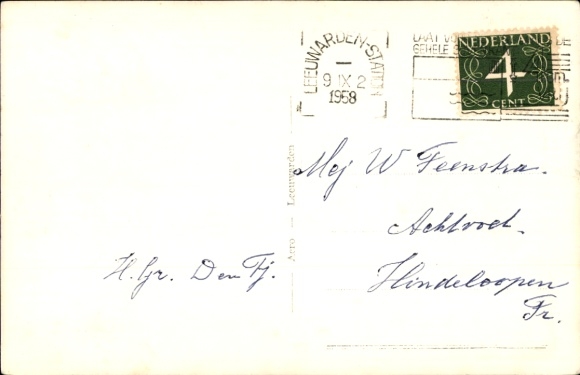 LEEUWARDEN-STATION
9 IX 2
1958
GEHELE
NEDERLAND
4
CENT
Aero — Leeuwarden
Mej W Feenstra.
Achtvoet.
Hindeloopen
Fr.
H. Gr. Den Fj.